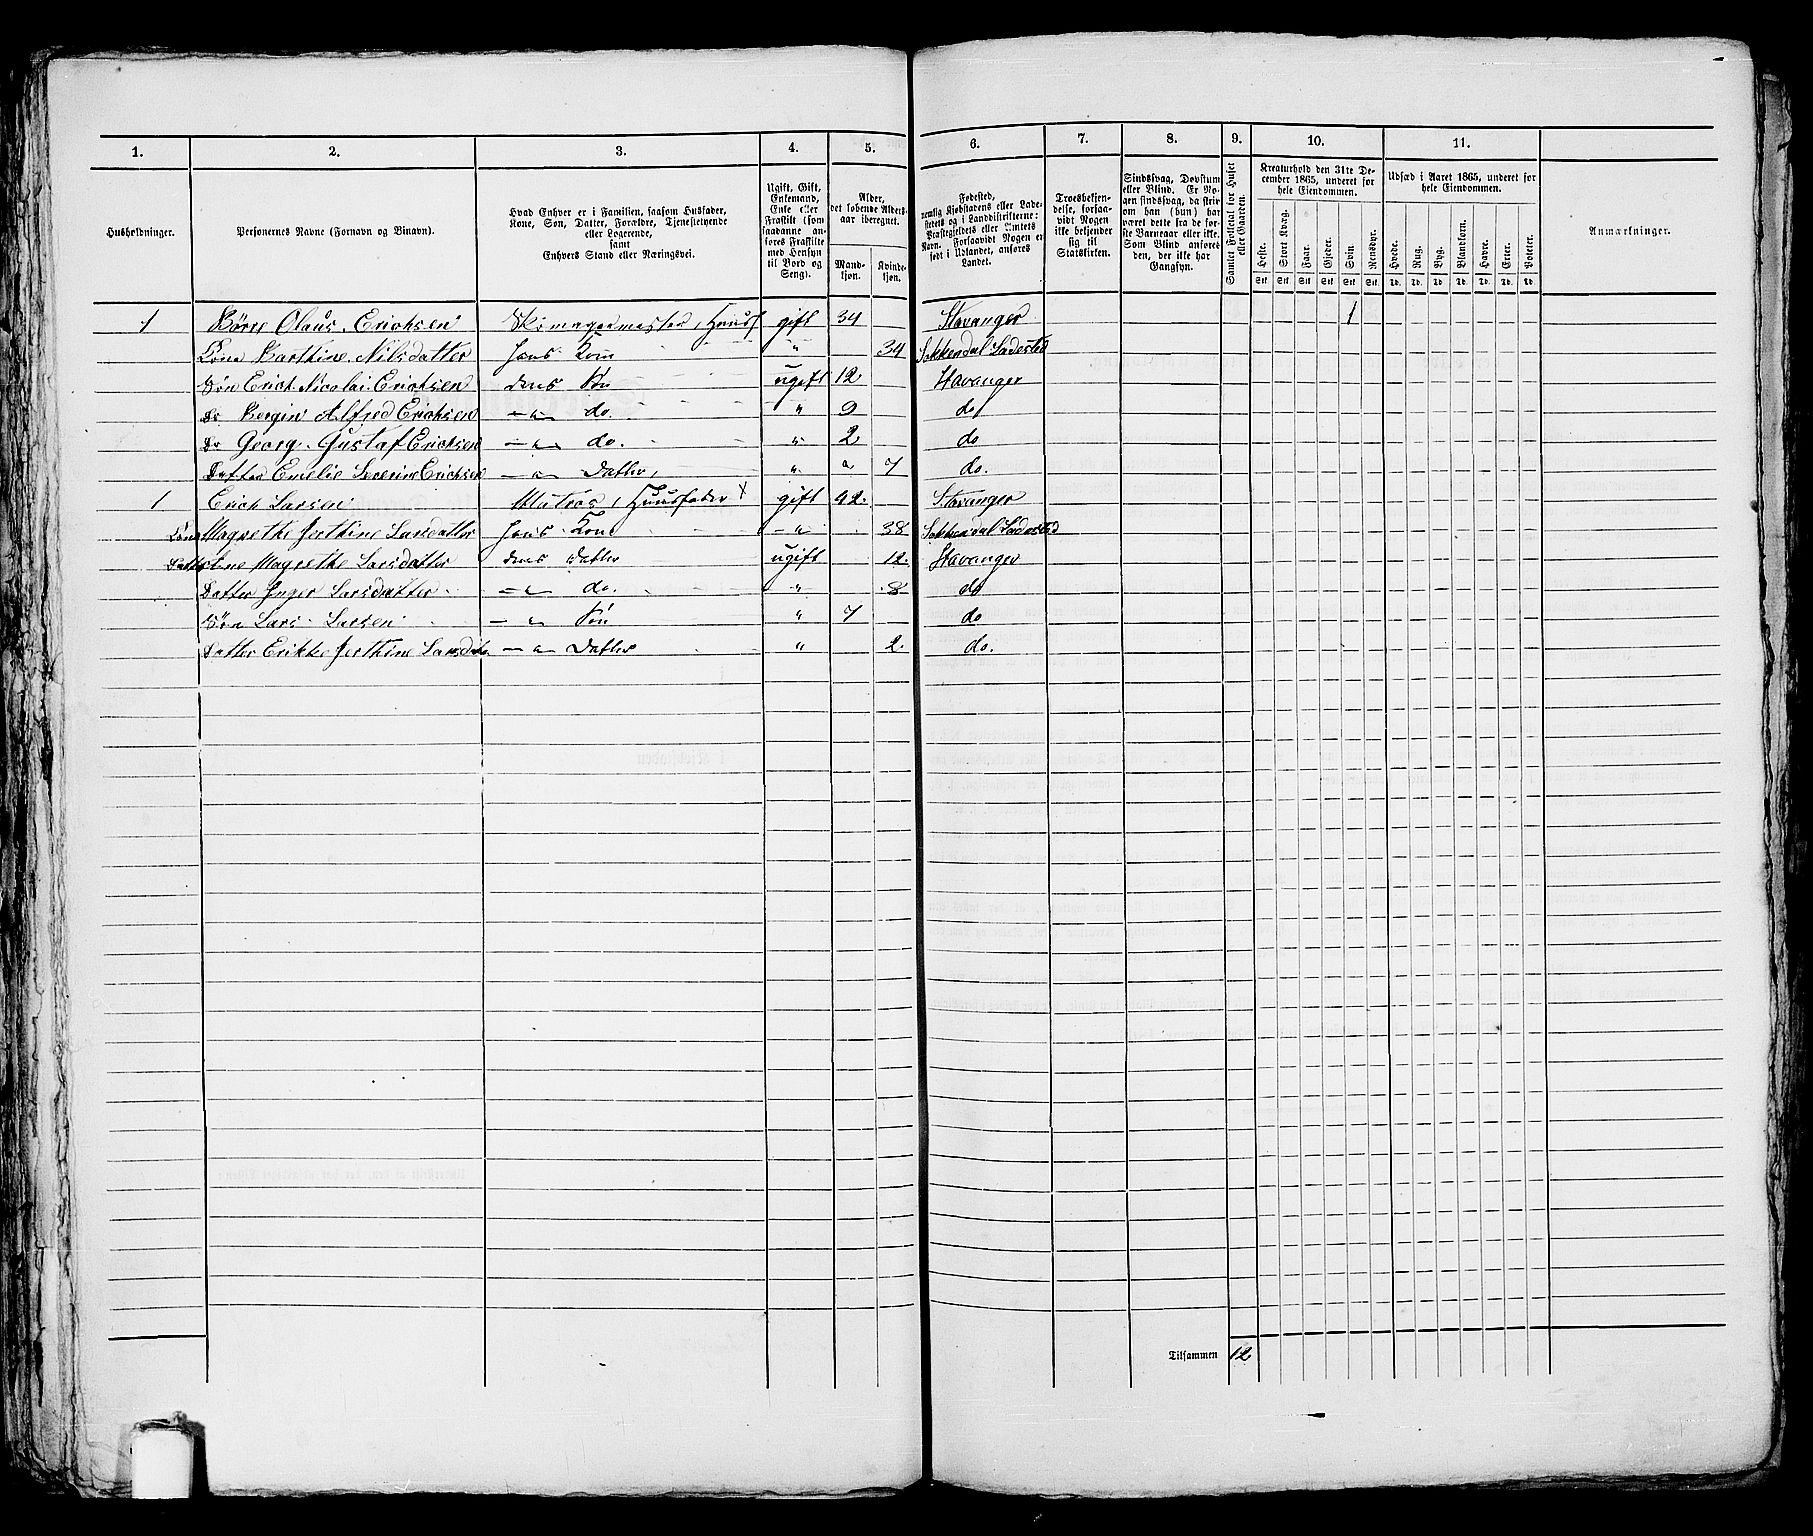 1. 2. 3. 4. 5. 6. 7. 8. 9. 10. 11.
Husholdninger.
Personernes Navne (Fornavn og Binavn).
Hvad Enhver er i Familien, saasom Husfader,
Kone, Søn, Datter, Forældre, Tjenestetyende
eller Logerende,
samt
Enhvers Stand eller Næringsvei.
Ugift, Gift,
Enkemand,
Enke eller
Fraskilt (som
saadanne an-
føres Fraskilte
med Hensyn
til Bord og
Seng).
Alder,
det løbende Alders-
aar iberegnet.
Mand-
kjøn.
Kvinde-
kjøn.
Fødested,
nemlig Kjøbstadens eller Lade-
stedets og i Landdistrikterne:
Præstegjeldets eller Amtets
Navn. Forsaavidt Nogen er
født i Udlandet, anføres
Landet.
Troesbekjen-
delse, forsaa-
vidt Nogen
ikke bekjender
sig til
Statskirken.
Sindssvag, Døvstum
eller Blind. Er No-
gen sindssvag, da skri-
ver man (hun) har
været dette fra de før-
ste Barneaar eller ikke.
Som Blind anføres
den, der ikke har
Gangsyn.
Samlet Folketal for Huset
eller Gaarden.
Kreaturhold den 31te De-
cember 1865, underet for
hele Eiendommen.
Heste. Stort Kvæg. Faar. Gjeder. Svin. Rensdyr.
Stk. Stk. Stk. Stk. Stk. Stk.
Udsæd i Aaret 1865, underet for
hele Eiendommen.
Hvede. Rug. Byg. Blandkorn. Havre. Erter. Poteter.
Td. Td. Td. Td. Td. Td. Td.
Anmærkninger.
1 Børre Olaus Erichsen Skomagermester, Huusf gift 34 Stavanger 1
Kone Barthine Nilsdatter Hans Kone " 34 Sokkendal Ladested
Søn Erich Nicolai Erichsen deres Søn ugift 12 Stavanger
Do Bergin Alfred Erichsen — " — do. " 9 do
Do Georg Gustaf Erichsen — " — do. " 2 do
Datter Emelie Severine Erichsen — " — Datter, " " 7 do.
1 Erich Larsen Matros, Huusfader x gift 42. Stavanger
Kone Magrethe Jerthine Larsdatter Hans Kone — " 38 Sokkendal Ladested
Datter Ane Magrethe Larsdatter deres Datter ugift 12. Stavanger
Datter Inger Larsdatter — " — do. " 8 do
Søn Lars Larsen — " Søn " 7 do
Datter Erikke Jerthine Larsdatter — " — Datter " 2. do.
Tilsammen 12